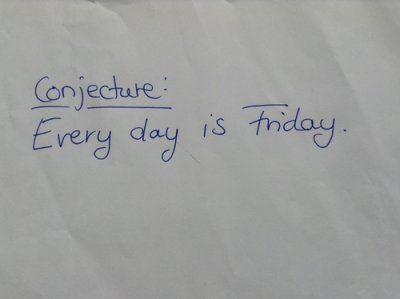 Conjecture:
Every day is Friday.